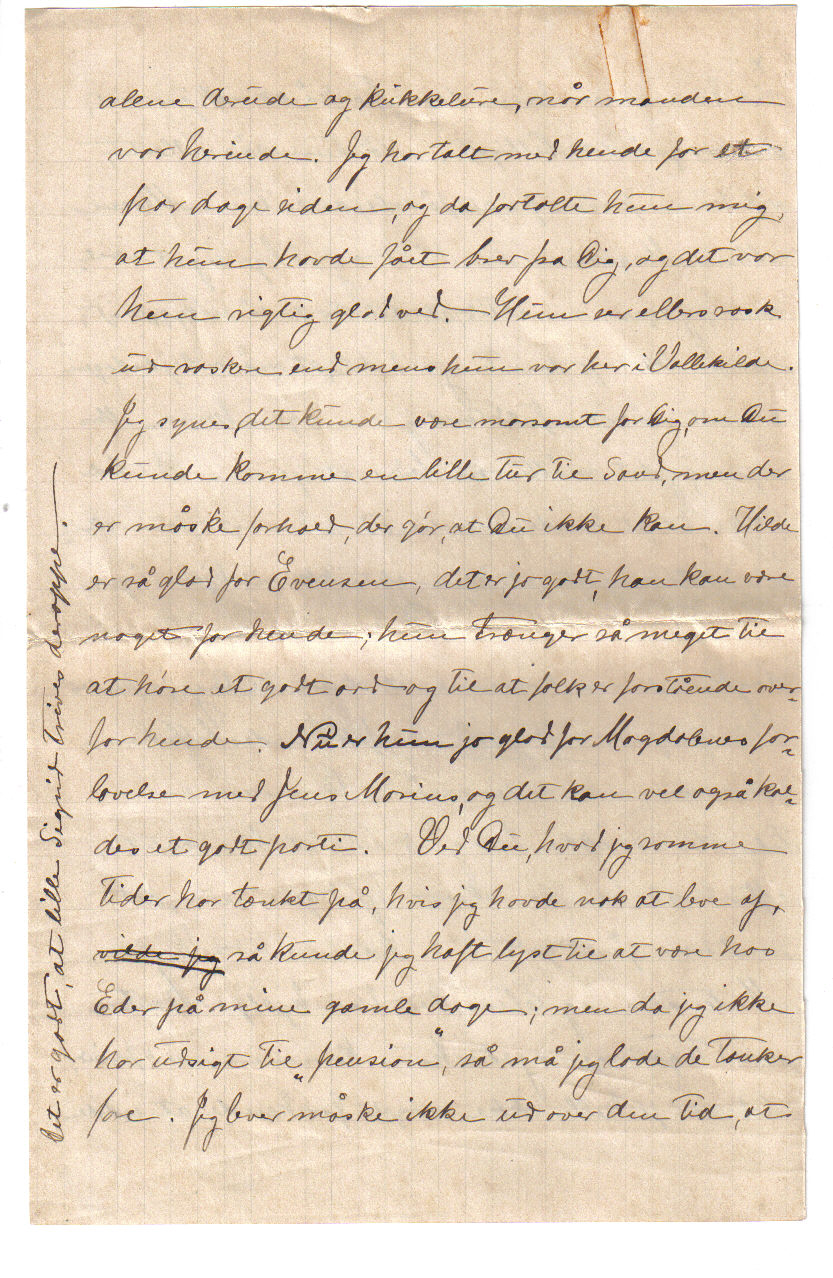 alene derude og kukkelure, når manden
var herinde. Jeg har talt med hende for et
par dage siden, og da fortalte hun mig,
at hun havde fået brev fra Dig, og det var
hun rigtig glad ved. Hun ser ellers rask
ud raskere end mens hun var her i Vallekilde.
Jeg synes, det kunde være morsomt for Dig, om Du
kunde komme en lille tur til Sand, men der
er måske forhold, der gør, at Du ikke kan. Hilde
er så glad for Evensen, det er jo godt, han kan være
noget for hende; hun trænger så meget til
at høre et godt ord og til at folk er forstående over-
for hende. Nu er hun jo glad for Magdalenes for-
lovelse med Jens Marius, og det kan vel også kal-
des et godt parti. Ved Du, hvad jeg somme
tider har tænkt på, hvis jeg havde nok at leve af,
vilde jeg så kunde jeg haft lyst til at være hos
Eder på mine gamle dage; men da jeg ikke
har udsigt til "pension", så må jeg lade de tanker
fare. Jeg lever måske ikke ud over den tid, at
Det er godt, at lille Sigrid trives deroppe.